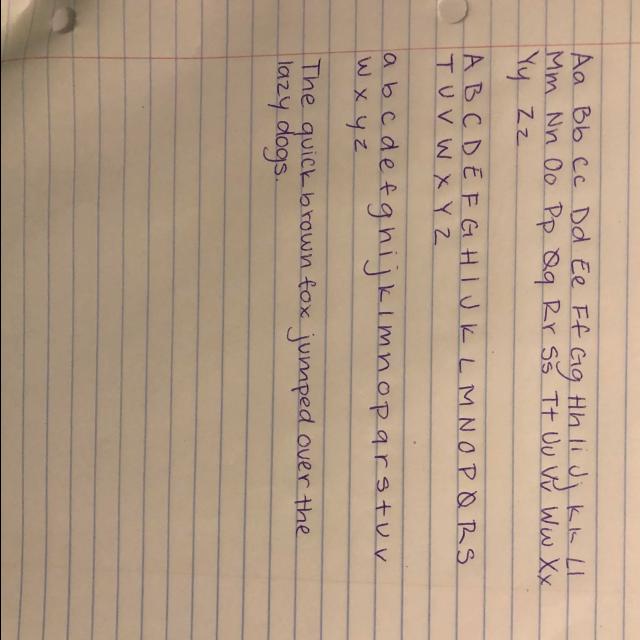 Aa Bb Cc Dd Ee Ff Gg Hh Ii Jj Kk Ll
Mm Nn Oo Pp Qq Rr Ss Tt Uu Vv Ww Xx
Yy Zz
A B C D E F G H I J K L M N O P Q R S
T U V W X Y Z
a b c d e f g h i j k l m n o p q r s t u v
w x y z
The quick brown fox jumped over the
lazy dogs.